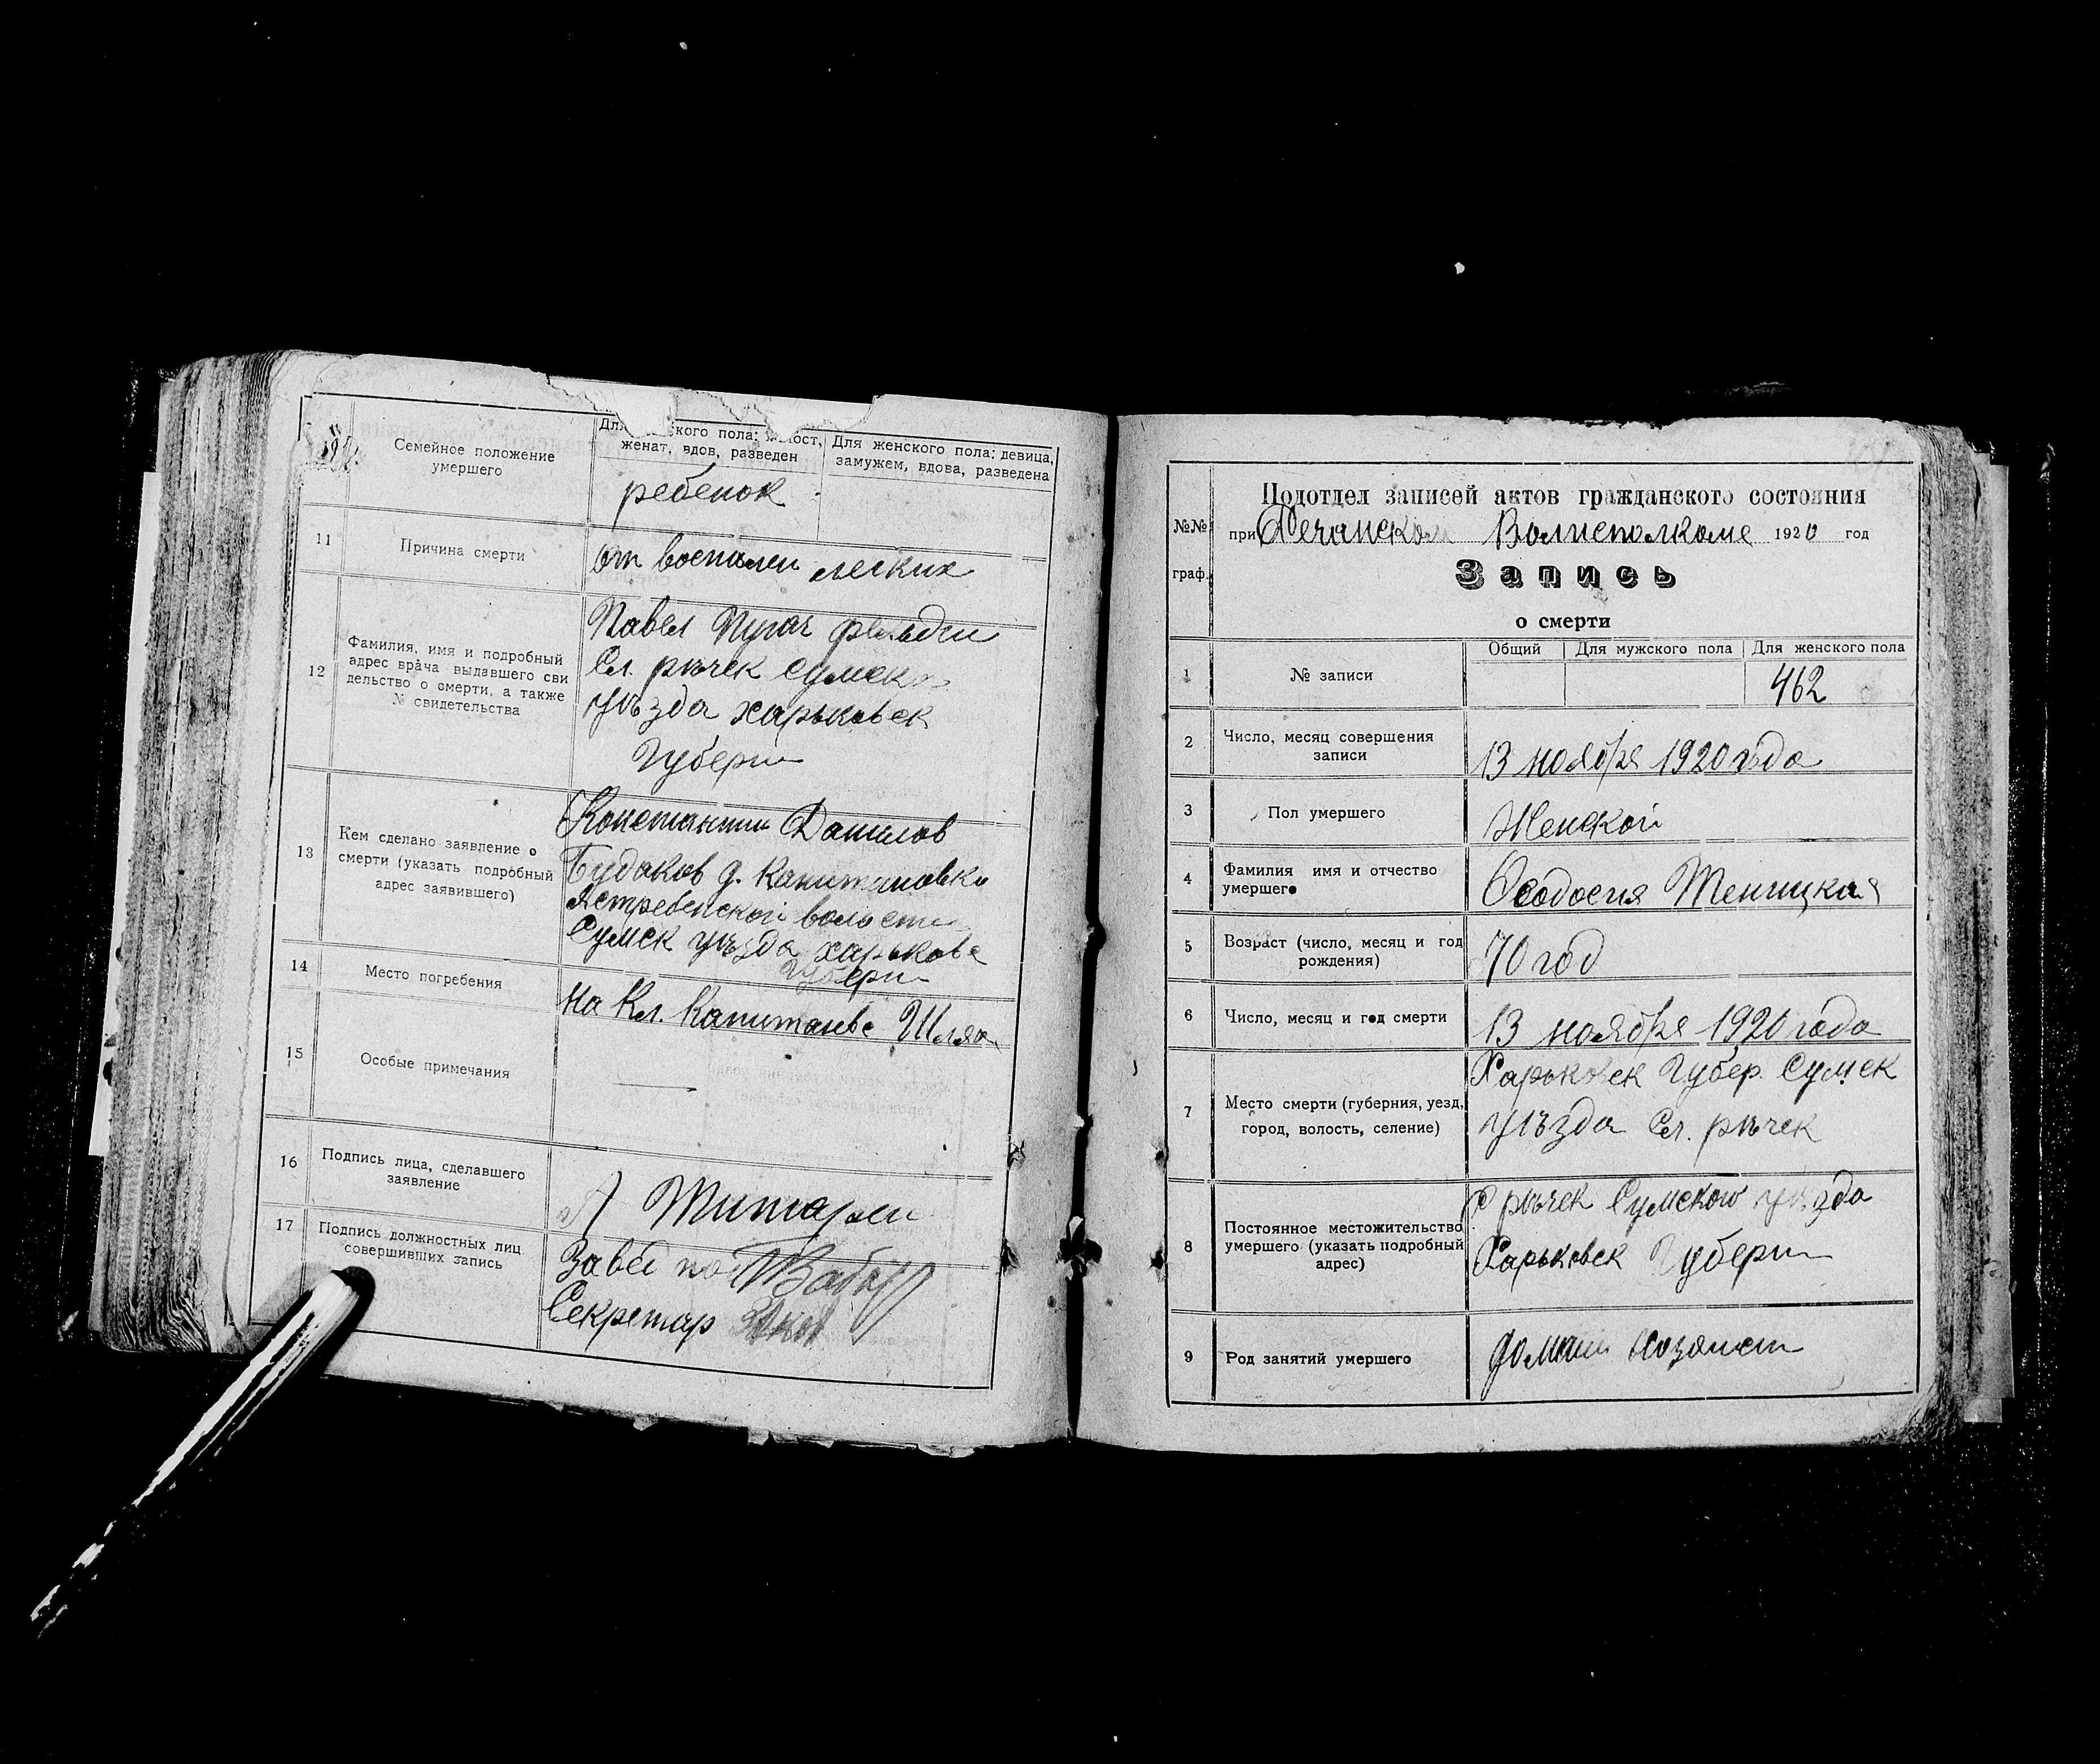 Семейное положение
умершего
женат, вдов, разведен
Для женского пола: девица,
замужем, вдова, разведена
ребенок
11
Причина смерти
от воспален легких
12
Фамилия, имя и подробный
адрес врача выдавшего сви
дельство о смерти, а также
№ свидетельства
Павел Пугач
Сл. рѣчек Сумск
уѣзда харьковск
Губерн
13
Кем сделано заявление о
смерти (указать подробный
адрес заявившего)
Константин Данилов
Будаков д. Капитановки
Ястребенской волости
Сумск уѣзда харьковс
Губерн
14
Место погребения
на Кл.
15
Особые примечания
16
Подпись лица, сделавшего
заявление
17
Подпись должностных лиц
совершивших запись
Секретар
№№
граф.
Подотдел записей актов гражданского состояния
при Речанском Волисполкоме 1920 год
Запись
о смерти
1
№ записи
Общий
Для мужского пола
Для женского пола
462
2
Число, месяц совершения
записи
13 ноября 1920 года
3
Пол умершего
Женской
4
Фамилия имя и отчество
умершего
Феодосия
5
Возраст (число, месяц и год
рождения)
70 год
6
Число, месяц и год смерти
13 ноября 1920 года
7
Место смерти (губерния, уезд,
город, волость, селение)
Харьковск Губер. Сумск
уѣзда Сл. рѣчек
8
Постоянное местожительство
умершего (указать подробный
адрес)
С рѣчек Сумского уѣзда
Харьковск Губерн
9
Род занятий умершего
домаш хозяист